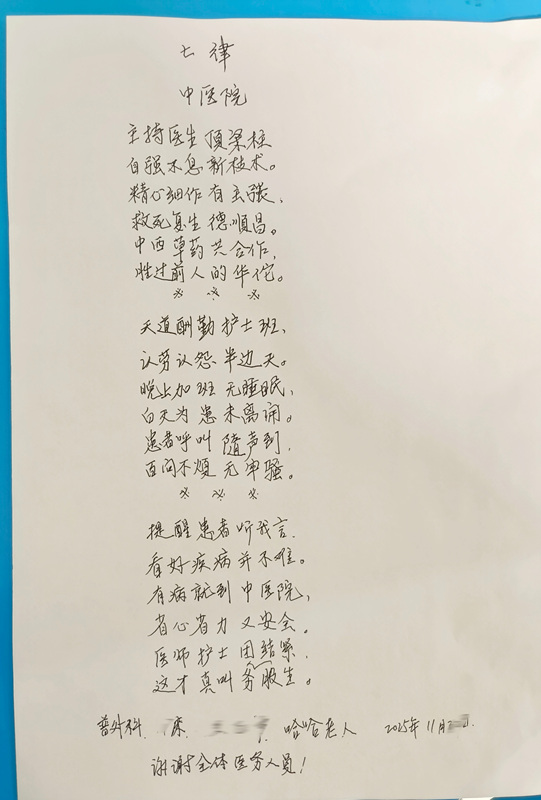 七律
中医院
主持医生顶梁柱
自强不息新技术。
精心细作有主张,
救死复生德顺昌。
中西草药共合作,
胜过前人的华佗。
※ ※ ※
天道酬勤护士班,
认劳认怨半边天。
晚上加班无睡眠,
白天为患未离开。
患者呼叫随声到,
百问不烦无牢骚。
※ ※ ※
提醒患者听我言.
看好疾病并不难。
有病就到中医院,
省心省力又安全。
医师护士团结紧.
这才真叫务服生。
普外科 床 哈哈老人 2025年11月
谢谢全体医务人员!